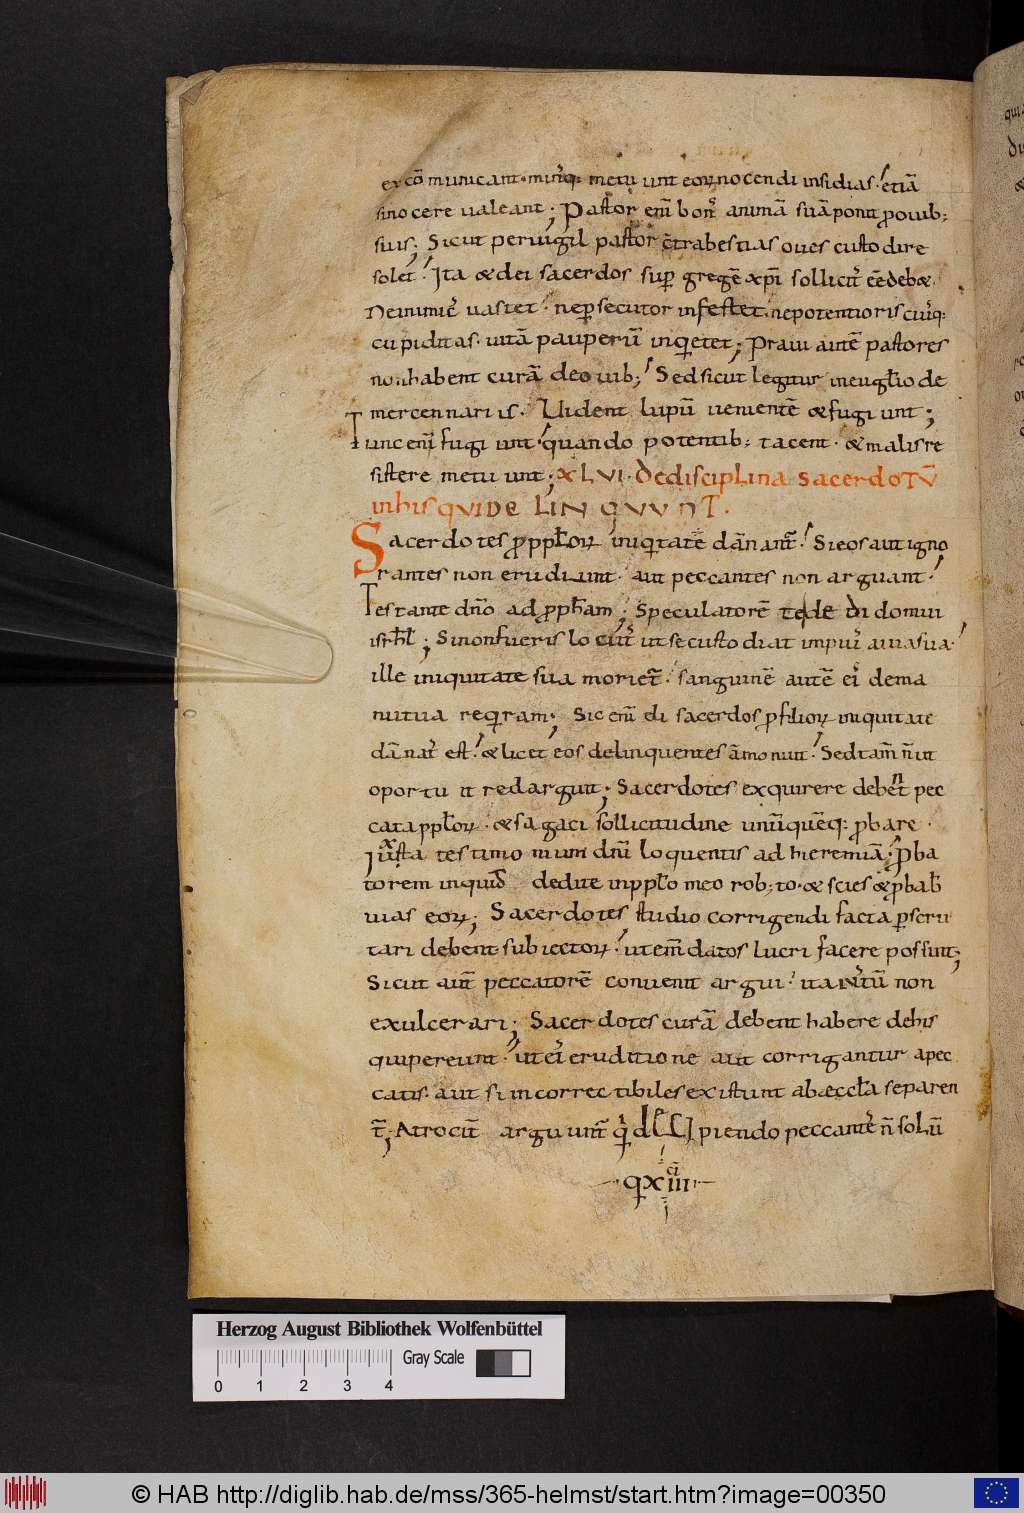 excō municant· minusq; metuunt eorū nocendi insidias· etiā
sinocere ualeant; Pastor eni͞ bon᷒ animā suā ponit ꝓouib;
suis; Sicut peruigil pastor cͣ̄tra bestias oues custodire
solet· Ita & dei sacerdos suꝑ gregē xp̄i sollicit᷒ eē deb&·
Neinimic᷒ uastet· neꝑsecutor infestet· nepotentioris cui᷒q;
cupiditas· uitā pauperū inquietet; Praui autē pastores
non habent curā deouib; Sedsicut legitur ineuglio de
mercennariis· Uident lupū uenientē &fugiunt;
Tunc eni͞ fugiunt· quando potentib; tacent· &malis re
sistere metuunt; XLVI· De disciplina sacerdotū
inhis qui DELINQUUNT·
Sacerdotes ꝓpplōꝝ iniqitate dānant᷑· Sieos aut igno
rantes non erudiunt· aut peccantes non arguant·
Testante dn̄o ad ꝓph̄am; Speculatorē te dedi domui
isrh̄l; Sinonfueris locut᷒ utsecustodiat impi᷒ auiasua·
ille iniquitate sua moriet᷑· sanguinē autē ei᷒ dema
nutua reqiram; Sic eni͞ eli sacerdos ꝓfilioꝝ iniquitate
dānat᷒ est· &licet eos delinquentes āmonuit· Sedtam̄ n̄ ut
oportuit redarguit; Sacerdotes exquirere debent pec
catapplōꝝ· &sagaci sollicitudine unūquēq; ꝓbare·
Iuxta testimonium dn̄i loquentis ad hieremiā· Ꝓba
torem inquid dedite inpplo meo rob;to· &scies &ꝓbab᷒
uias eoꝝ; Sacerdotes studio corrigendi facta ꝑscru
tari debent subiectoꝝ· utem̄datos lucri facere possint;
Sicut aut̄ peccatorē conuenit argui· ita iustū non
exulcerari; Sacerdotes curā debent habere dehis
quipereunt· utei᷒ eruditione aut corrigantur apec
catis· aut si incorrectibiles existunt abæccla separen
t᷑; Atrocit̄ arguunt᷑ qi d[eci]piendo peccante᷒ n̄ solū
·qxiiii·
Herzog August Bibliothek Wolfenbüttel
Gray Scale
0 1 2 3 4
© HAB http://diglib.hab.de/mss/365-helmst/start.htm?image=00350